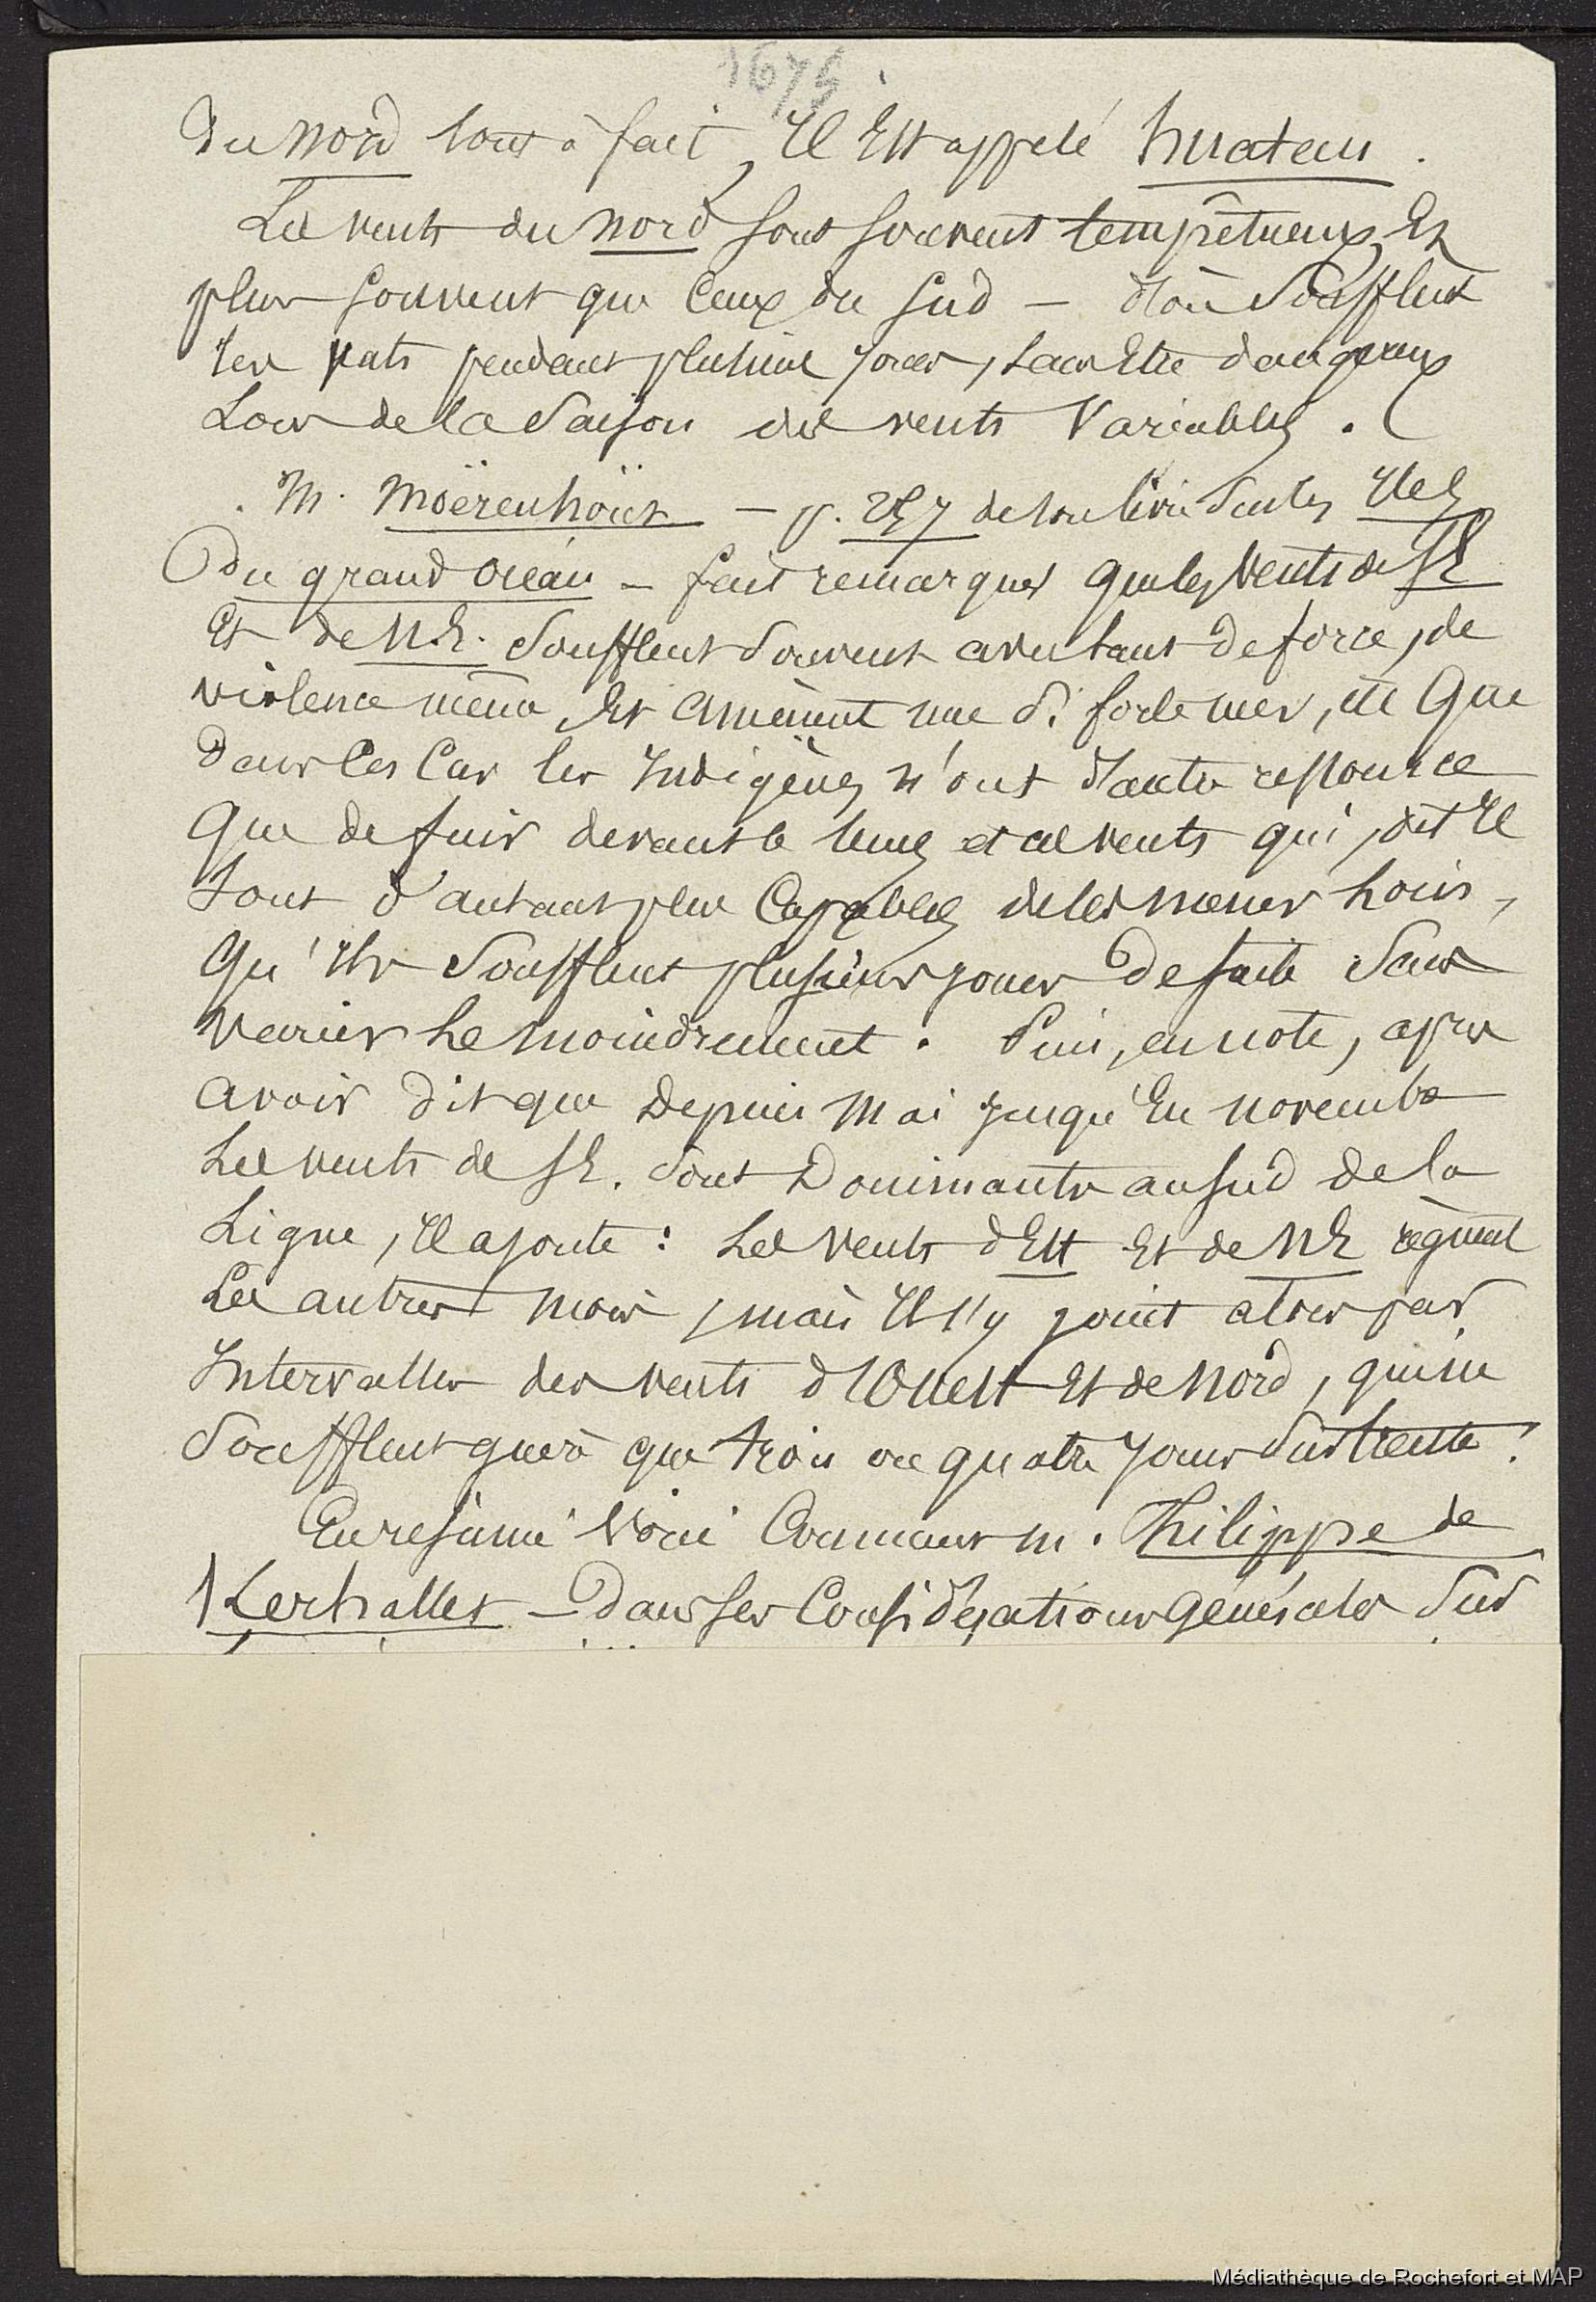 1675
du nord tout à fait, Il Est appelé huateau.
Les vents du nord sont souvent tempêtueux, Et
plus souvent que ceux du sud — d'où soufflent
les pendant plusieurs jours, sans Etre dangereux
Lors de la saison des vents Variables.
M. Moërenhoüt — p. 257 de son livre sur les Iles
du grand océan — fait remarquer que les vents de SE
Et de N.E. soufflent souvent avec tant de force, de
violence même, Et amènent une si forte mer, que
dans ces cas les Indigènes n'ont d'autre ressource
que de fuir devant le temps et ces vents qui, dit Il
sont d'autant plus capables de les mener loin,
qu'Ils soufflent plusieurs jours de suite sans
varier le moindrement. Puis, en note, après
avoir dit que Depuis Mai jusqu'En novembre
Les vents de SE. sont Dominants au sud de la
Ligne, Il ajoute : Les vents d'Est Et de NE règnent
Les autres mois, mais Il s'y joint alors par
Intervalles des vents d'Ouest Et de Nord, qui ne
soufflent guère que trois ou quatre jours sur trente.
En résumé voici Comment M. Philippe de
Kerhallet — Dans ses Considérations générales sur
Médiathèque de Rochefort et MAP